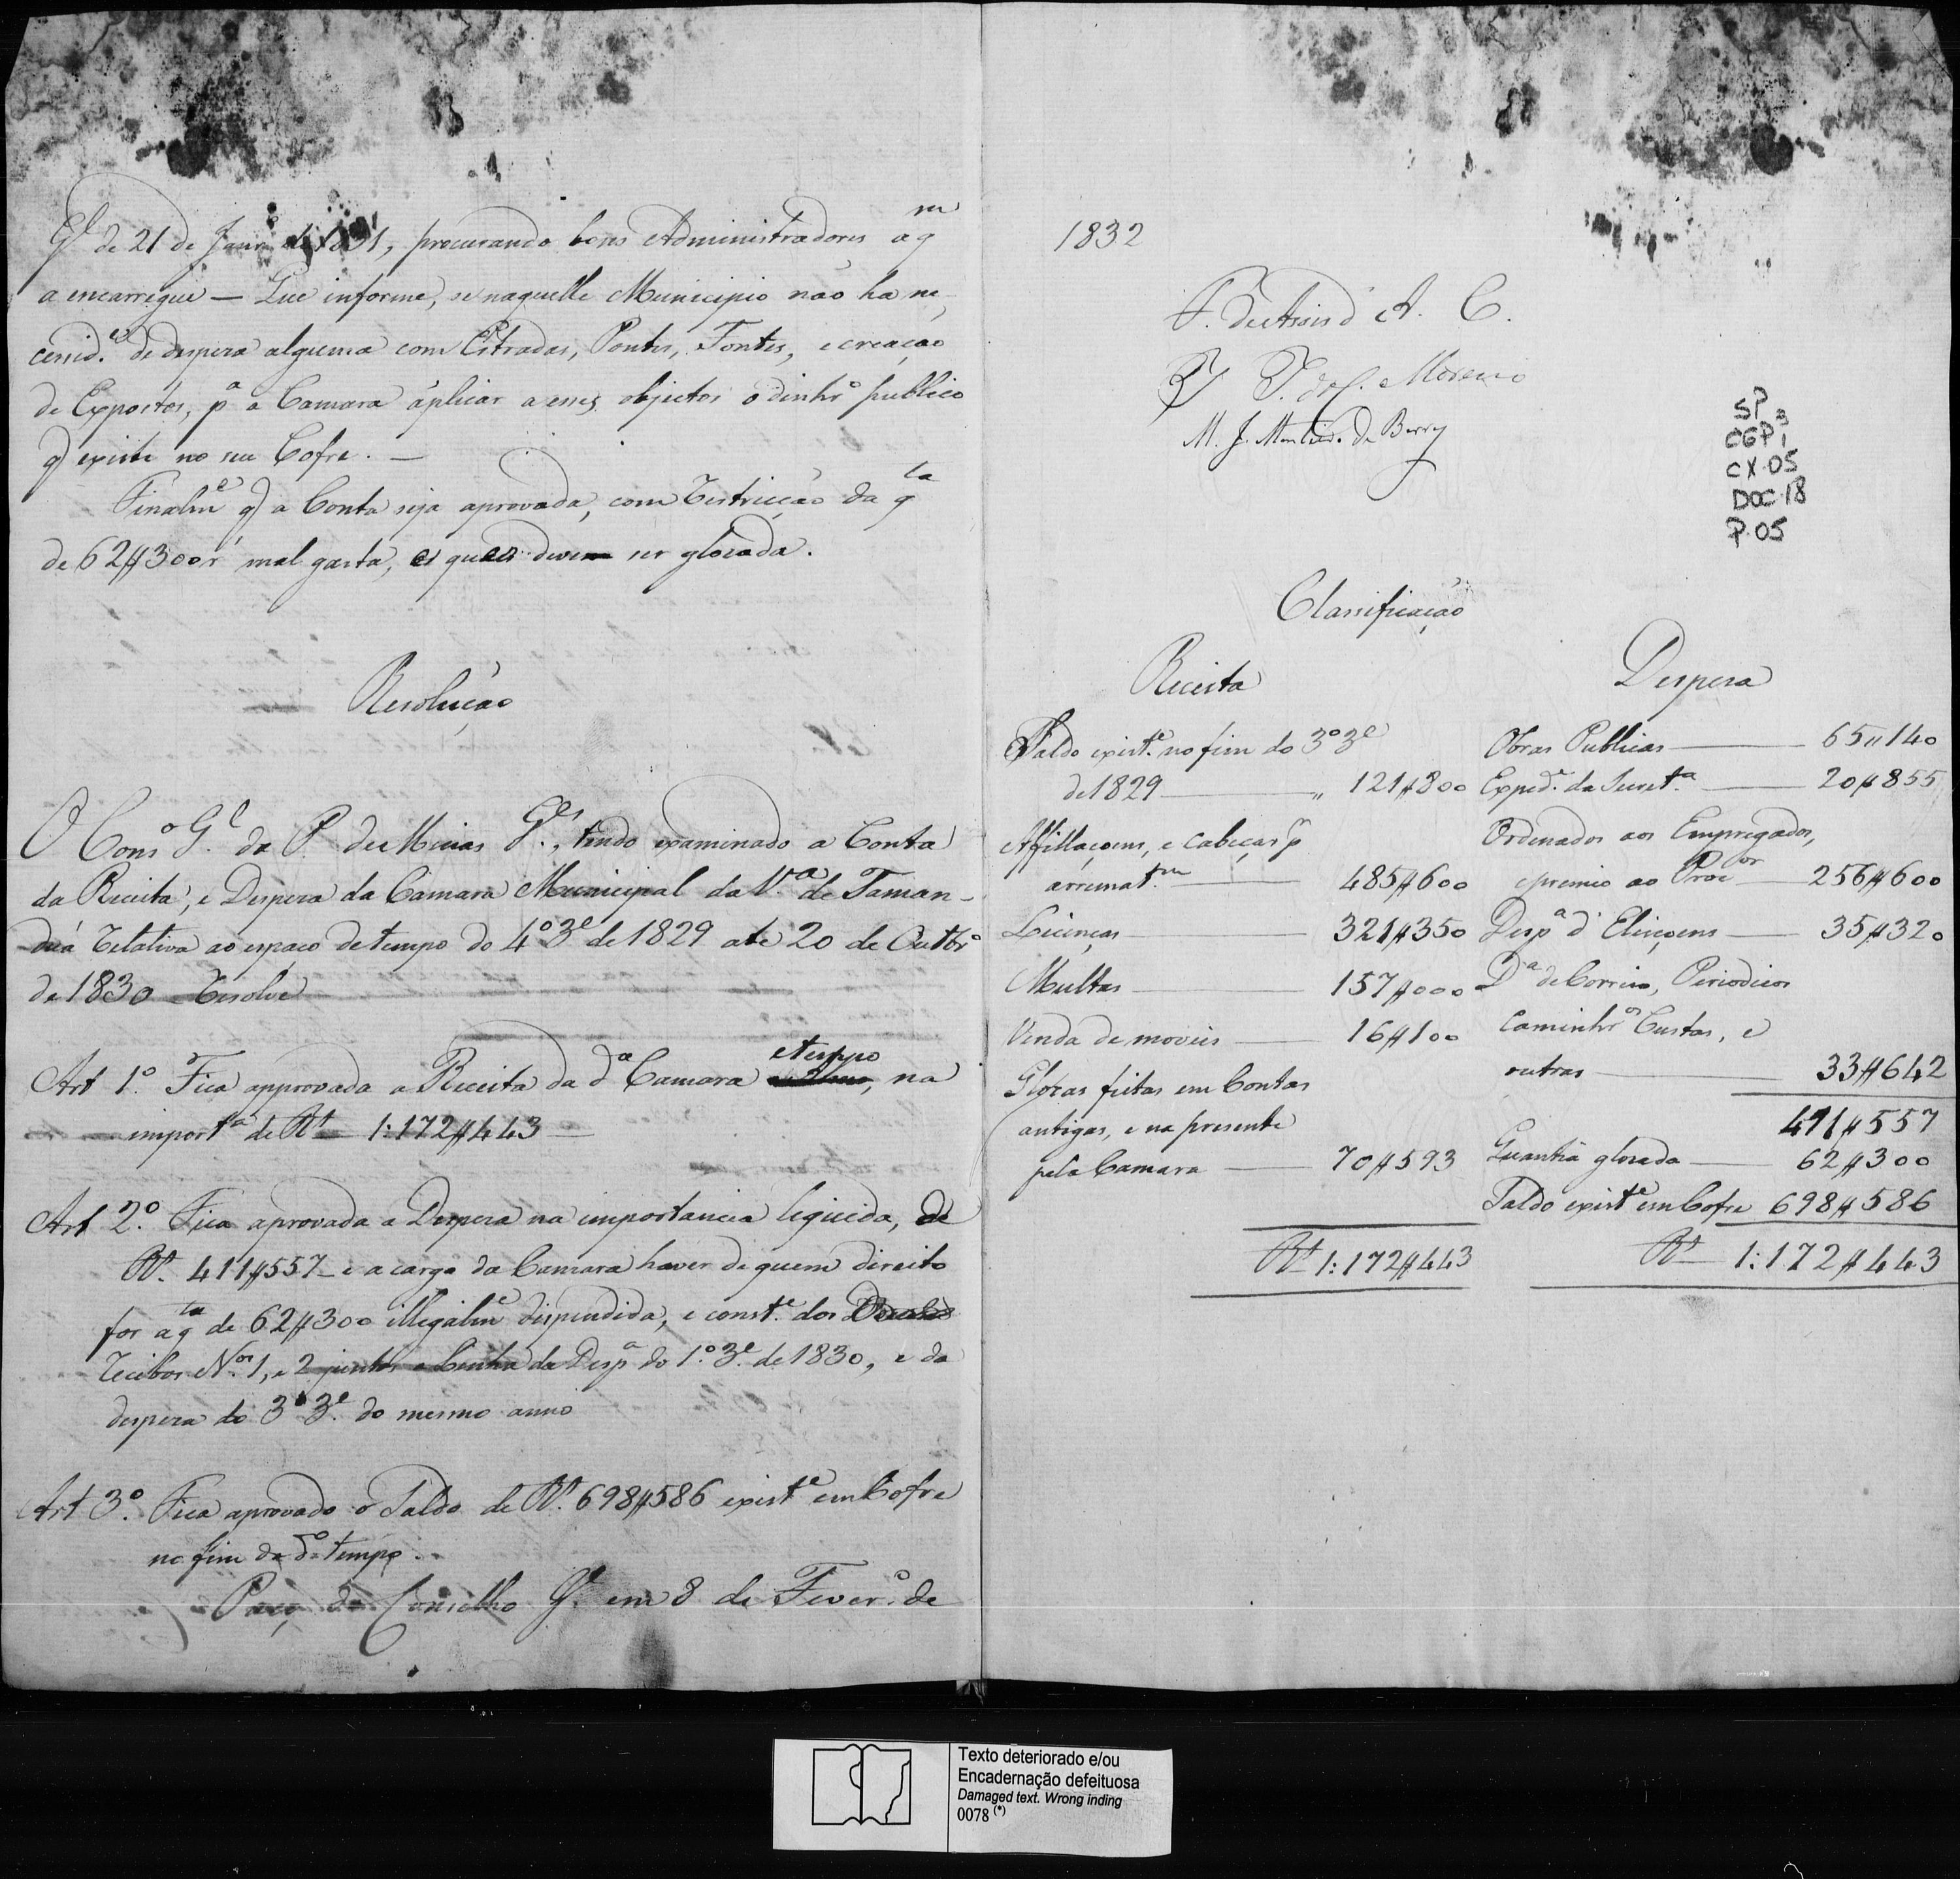 Gl de 21 de Janro de 1831, procurando bons Administradores a qm
a encarregue — Que informe, se naquelle Municipio não ha ne-
cessid.es de despeza alguma com Estradas, Pontes, Fontes, e creação
de Expostos, pa a Camara aplicar a esses objectos o dinhro publico
q existe no seu Cofre. —
Finalme q a Conta seja aprovada, com restricção da qta
de 62$300 r mal gasta, a qual deve ser glosada.
Resolução
O Conso Gl da P. de Minas Ges, tendo examinado a Conta
da Receita, e Despeza da Camara Municipal da Va de Taman-
duá relativa ao espaço de tempo do 4o 3e de 1829 até 20 de Outbro
de 1830 Resolve
Art 1o. Fica approvada a Receita da da Camara e tempo, na
importa de Rs 1:172$443 —
Art 2o. Fica aprovada a Despeza na importancia liquida, de
Rs. 411$557 — e a cargo da Camara haver de quem direito
for a qta de 62$300 illegalme dispendida, e conste. dos
recibos Nos. 1, e 2 juntos a Conta da Despa do 1o. 3e. de 1830, e da
despeza do 3o 3e. do mesmo anno
Art 3o. Fica aprovado o Saldo de Rs. 698$586 existe em Cofre
no fim do do tempo.
Paço do Conselho Gl. em 8 de Fever.o de
1832
F. de Assis d' A. C.
J. de S. Moreno
M. J. Monteiro de Barros
SP
CGP 3
1
CX.05
DOC.18
P.05
Classificação
Receita
Saldo exist.e no fim do 3o 3e
de 1829 — " 121$800
Affillaçoens, e cabeças pr
arrematm — 485$600
Licenças — 321$350
Multas — 157$000
Venda de moveis — 16$100
Glozas feitas em Contas
antigas, e na presente
pela Camara — 70$593
Rs 1:172$443
Despeza
Obras Publicas — 65"140
Exped.e da Secret.a — 20$855
Ordenados aos Empregados,
e premio ao Procor — 256$600
Despa d' Eleiçoens — 35$320
Da de Correio, Periodicos
Caminhos Custas, e
outras — 33$642
411$557
Quantia glosada — 62$300
Saldo existe em Cofre 698$586
Rs 1:172$443
Texto deteriorado e/ou
Encadernação defeituosa
Damaged text. Wrong inding
0078 (*)